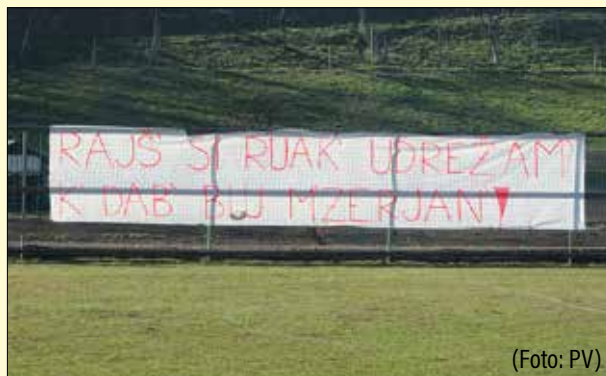 RAJŠ SI RUAK UDREŽAM
K DAB BUJ MZERJAN!
(Foto: PV)